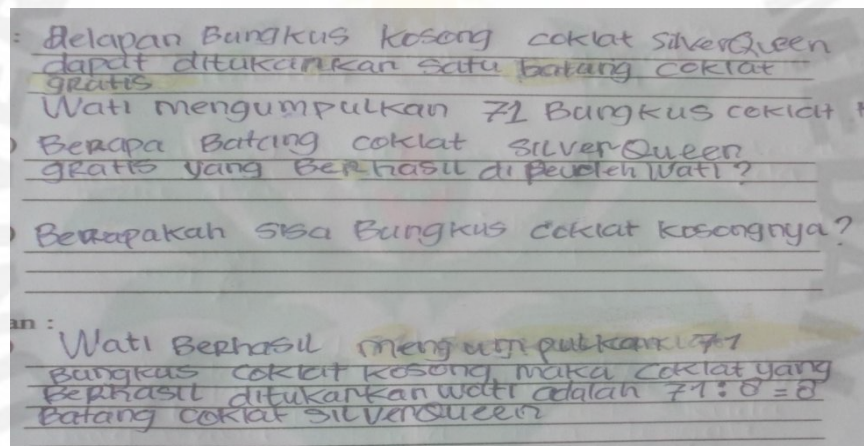 : Delapan Bungkus kosong coklat SilverQueen
dapat ditukarkan satu batang coklat
gratis
Wati mengumpulkan 71 Bungkus coklat
) Berapa Batang coklat SilverQueen
gratis yang Berhasil di peroleh Wati?
) Berapakah sisa Bungkus coklat kosongnya?
an :
Wati Berhasil mengumpulkan 71
Bungkus coklat kosong, maka coklat yang
Berhasil ditukarkan wati adalah 71 : 8 = 8
Batang coklat SilverQueen